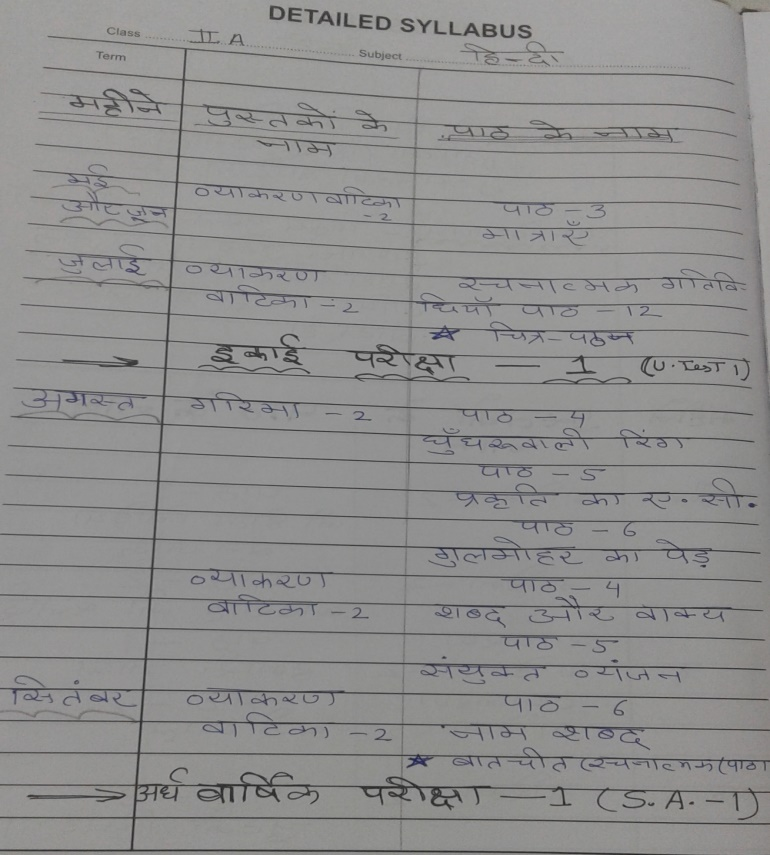 DETAILED SYLLABUS
Class II A Subject हिन्दी
Term
महीने पुस्तकों के पाठ के नाम
नाम
मई व्याकरण वाटिका पाठ - 3
और जून -2 मात्राएँ
जुलाई व्याकरण रचनात्मक गतिवि-
वाटिका - 2 धियाँ पाठ - 12
★ चित्र-पठन
→ इकाई परीक्षा — 1 (U. Test 1)
अगस्त गरिमा - 2 पाठ - 4
घुँघरूवाली रिंग
पाठ - 5
प्रकृति का ए. सी.
पाठ - 6
गुलमोहर का पेड़
व्याकरण पाठ - 4
वाटिका - 2 शब्द और वाक्य
पाठ - 5
संयुक्त व्यंजन
सितंबर व्याकरण पाठ - 6
वाटिका - 2 नाम शब्द
★ बातचीत (रचनात्मक (पाठ
→ अर्ध वार्षिक परीक्षा — 1 (S.A. - 1)